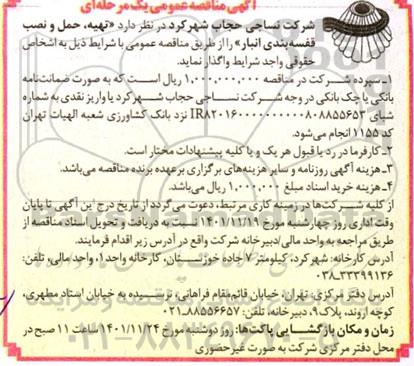 آگهی مناقصه عمومی یک مرحله‌ای
شرکت نساجی حجاب شهرکرد در نظر دارد «تهیه، حمل و نصب
قفسه‌بندی انبار» را از طریق مناقصه عمومی با شرایط ذیل به اشخاص
حقوقی واجد شرایط واگذار نماید.
۱ـ سپرده شرکت در مناقصه ۱,۰۰۰,۰۰۰,۰۰۰ ریال است که به صورت ضمانتنامه
بانکی یا چک بانکی در وجه شرکت نساجی حجاب شهرکرد یا واریز نقدی به شماره
شبای نزد بانک کشاورزی شعبه الهیات تهران
کد ۱۱۵۵ انجام می‌شود.
۲ـ کارفرما در رد یا قبول هر یک و یا کلیه پیشنهادات مختار است.
۳ـ هزینه آگهی روزنامه و سایر هزینه‌های برگزاری برعهده برنده مناقصه می‌باشد.
۴ـ هزینه خرید اسناد مبلغ ۱,۰۰۰,۰۰۰ ریال می‌باشد.
از کلیه شرکت‌ها در زمینه کاری مرتبط، دعوت می‌گردد از تاریخ درج این آگهی تا پایان
وقت اداری روز چهارشنبه مورخ ۱۴۰۱/۱۱/۱۹ نسبت به دریافت و تحویل اسناد مناقصه از
طریق مراجعه به واحد مالی/دبیرخانه شرکت واقع در آدرس زیر اقدام فرمایند.
آدرس کارخانه: شهرکرد، کیلومتر ۷ جاده خوزستان، کارخانه واحد ۱، واحد مالی، تلفن:
۰۳۸-۳۳۳۹۹۱۳۶
آدرس دفتر مرکزی: تهران، خیابان قائم‌مقام فراهانی، نرسیده به خیابان استاد مطهری،
کوچه اروند، پلاک ۹، دبیرخانه، تلفن: ۰۲۱-۸۸۵۵۶۶۵۷
زمان و مکان بازگشایی پاکت‌ها: روز دوشنبه مورخ ۱۴۰۱/۱۱/۲۴ ساعت ۱۱ صبح در
محل دفتر مرکزی شرکت به صورت غیرحضوری